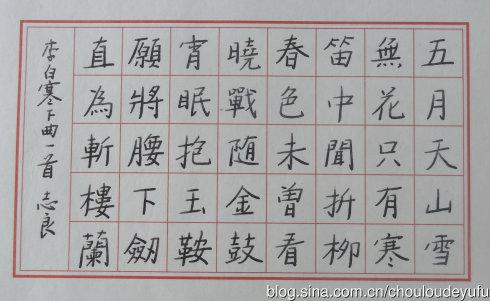 五月天山雪
無花只有寒
笛中聞折柳
春色未曾看
曉戰随金鼓
宵眠抱玉鞍
願將腰下劒
直為斬樓蘭
李白塞下曲一首 志良
blog.sina.com.cn/chouloudeyufu